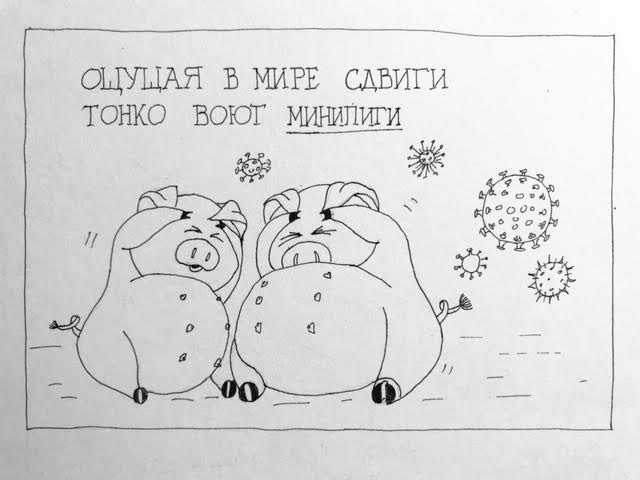 ОЩУЩАЯ В МИРЕ СДВИГИ
ТОНКО ВОЮТ МИНИПИГИ